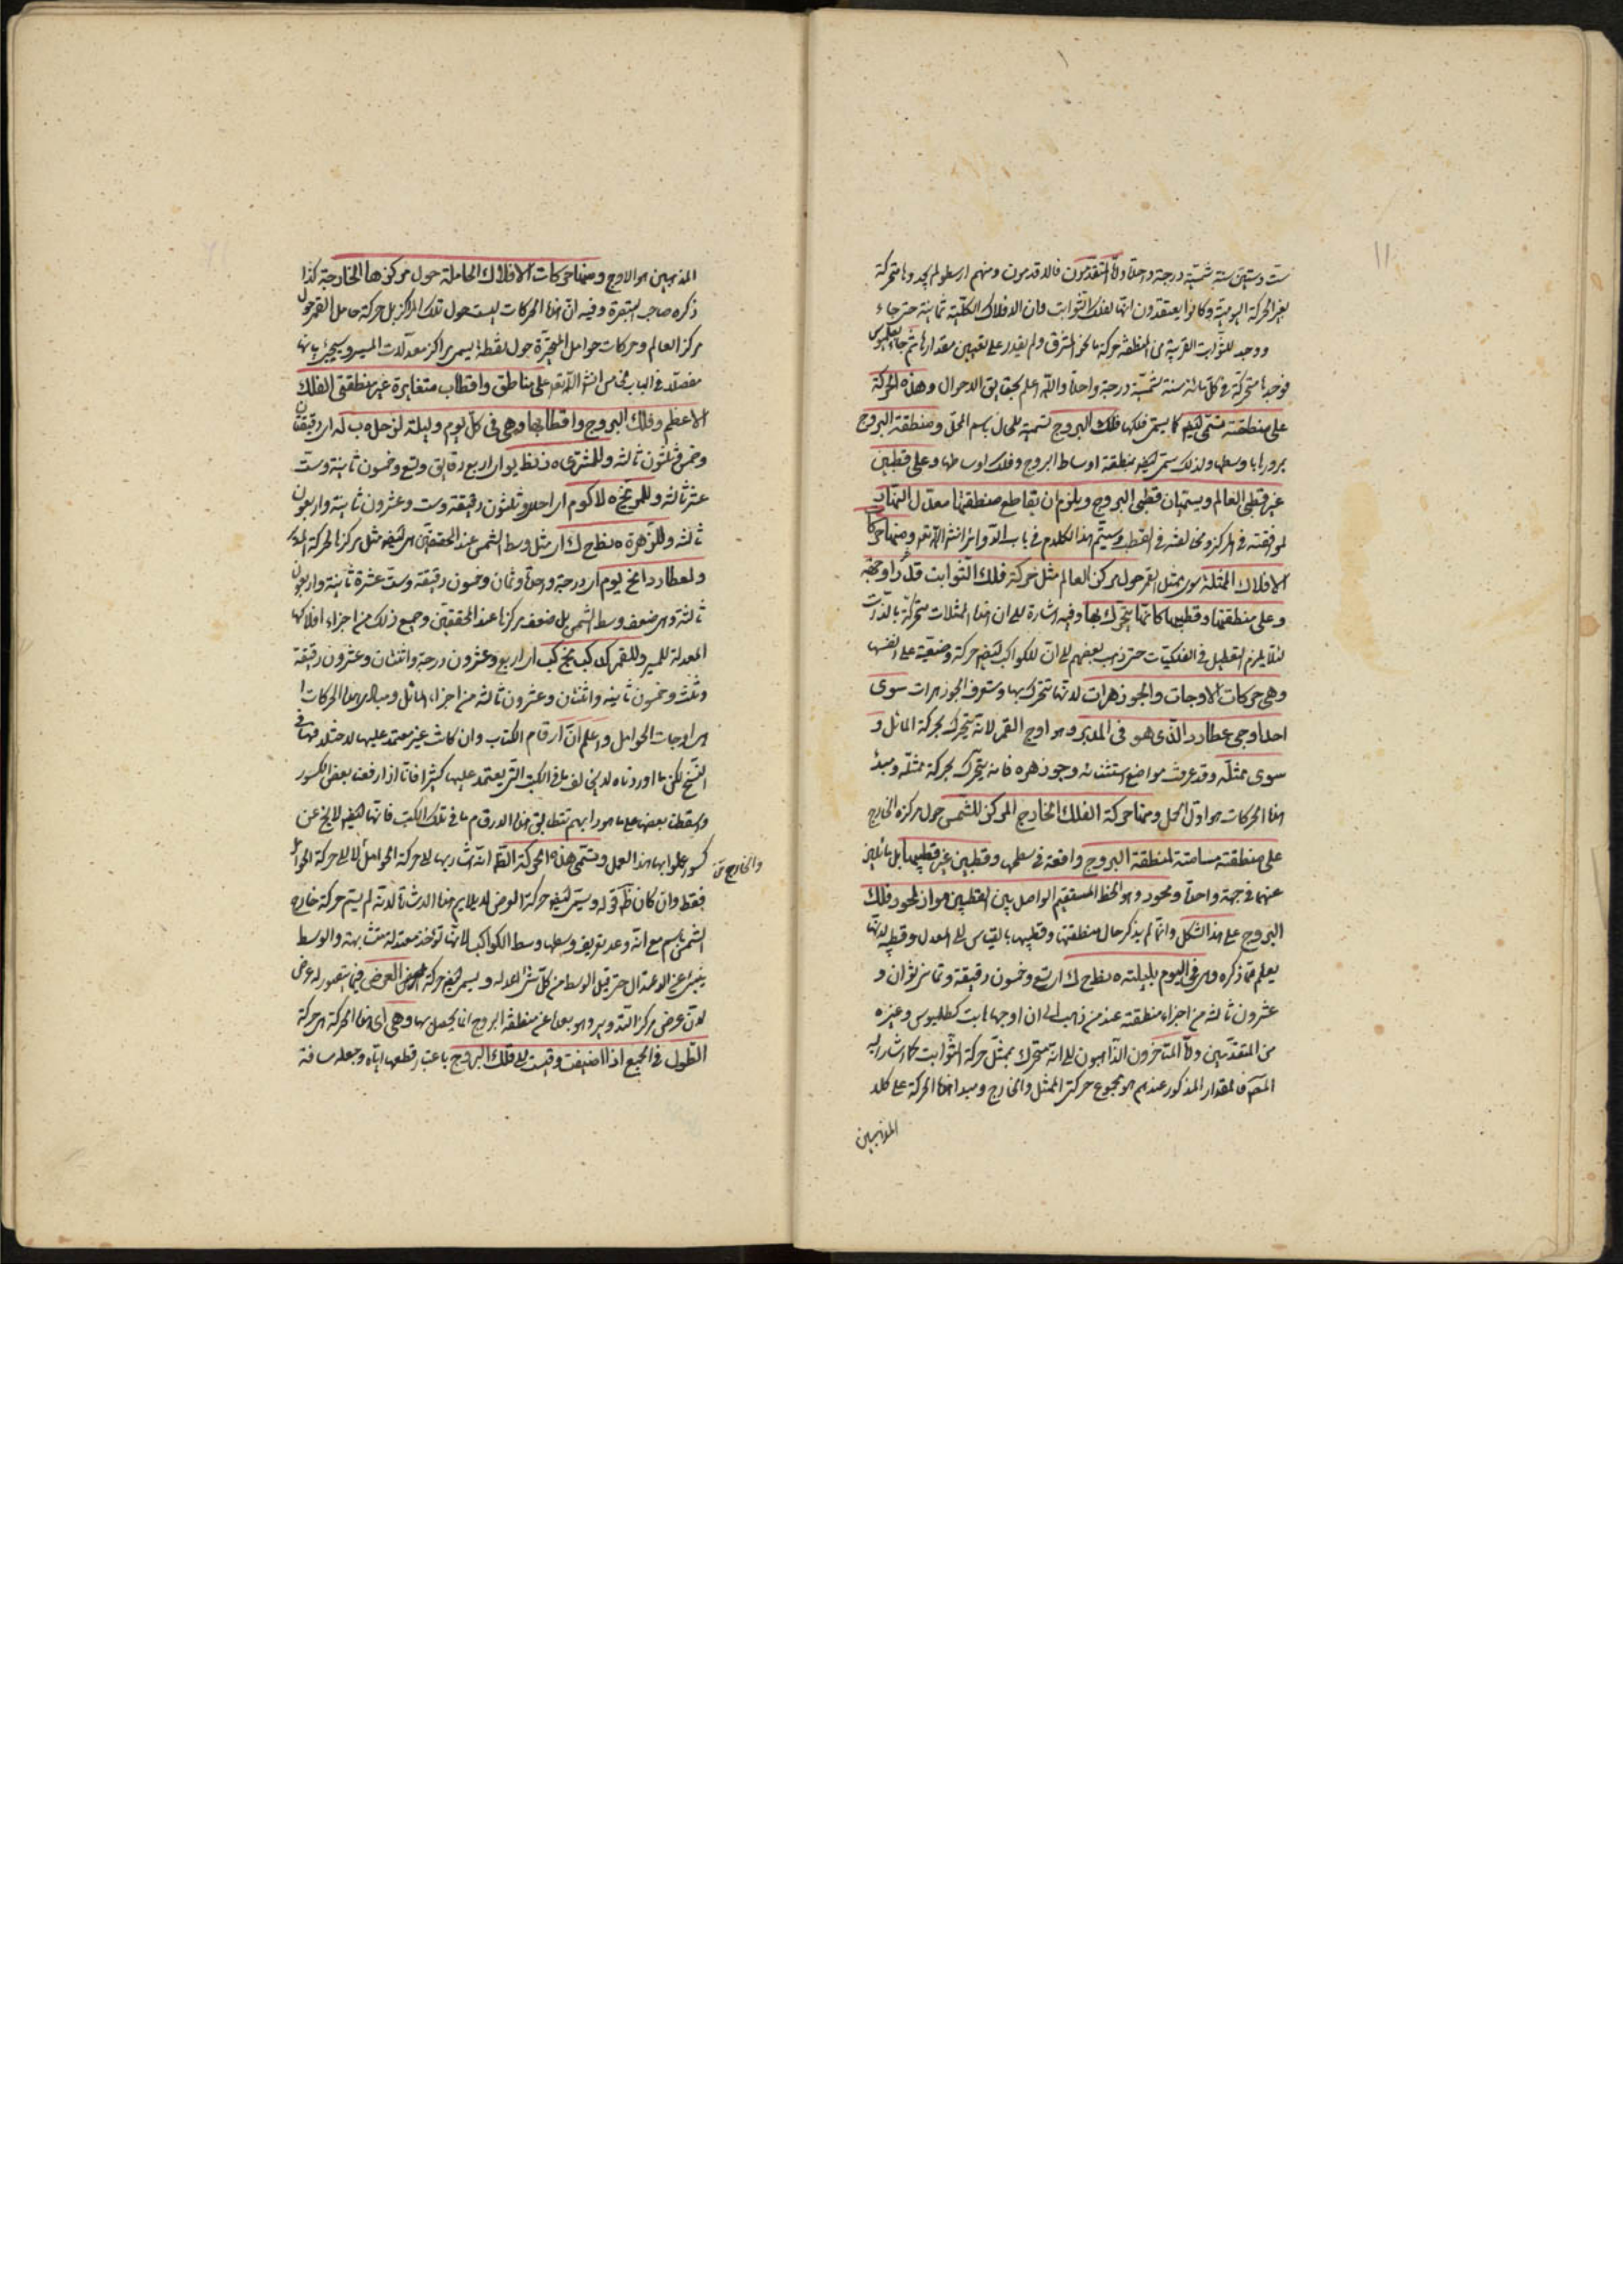 ١١
ست وستين سنة شمسية درجة واحدة واما المتقدمون فالاقدمون ومنهم ارسطو لم يجدوها متحركة
بغير الحركة اليومية وكانوا يعتقدون انها لفلك الثوابت وان الافلاك الكلية ثمانية حتى جاء
ووجد للثوابت القريبة من المنطقة حركة ما نحو المشرق ولم يقدر على تعيين مقدارها ثم جاء بطلميوس
فوجدها متحركة في كل مائة سنة شمسية درجة واحدة والله اعلم بحقايق الاحوال وهذه الحركة
على منطقة تسمى ايضا كما يسمى فلكها فلك البروج تسمية للحال باسم المحل ومنطقة البروج
مرورها بوسطها ولذلك سمي ايضا منطقة اوساط البروج وفلك اوساطها وعلى قطبين
غير قطبي العالم ويسميان قطبي البروج ويلزم ان يقاطع منطقتها معدل النهار
لموافقته في المركز ومخالفته في القطب وسيتم هذا الكلام في باب الدوائر انشاء الله تعالى ومنها حركات
الافلاك الممثلة سوى ممثل القمر حول مركز العالم مثل حركة فلك الثوابت قدرا وجهة
وعلى منطقتها وقطبيها كانها يتحرك بها وفيه اشارة الى ان هذه الممثلات متحركة بالذات
لئلا يلزم التعطيل في الفلكيات حتى ذهب بعضهم الى ان للكواكب ايضا حركة وضعية على انفسها
وهي حركات الاوجات والجوزهرات لانها تتحرك بها وستعرف الجوزهرات سوى
احد اوجي عطارد الذي هو في المدير وهو اوج القمر لانه يتحرك بحركة المائل و
سوى ممثله وقد عرفت مواضع استثنائه وجوزهره فانه يتحرك بحركة ممثله ومبدأ
هذه الحركات هو اول الحمل ومنها حركة الفلك الخارج المركز للشمس حول مركزه الخارج
على منطقة مسامتة لمنطقة البروج واقعة في سطحها وقطبين غير قطبيها بل مائلين
عنهما في جهة واحدة ومحور وهو الخط المستقيم الواصل بين القطبين مواز لمحور فلك
البروج على هذا الشكل وانما لم يذكر حال منطقتها وقطبيها بالقياس الى المعدل وقطبيه لانها
يعلم مما ذكره وهي في اليوم بليلته ه نط ح ك اي تسع وخمسون دقيقة وثمان ثوان و
عشرون ثالثة من اجزاء منطقته عند من ذهب الى ان اوجها ثابت كبطلميوس وغيره
من المتقدمين واما المتاخرون الذاهبون الى انه متحرك بمثل حركة الثوابت كما اشار اليه
المص فالمقدار المذكور عندهم هو مجموع حركتي الممثل والخارج ومبدا هذه الحركة على كلا
المذهبين
المذهبين هو الاوج ومنها حركات الافلاك الحاملة حول مركزها الخارجة كذا
ذكره صاحب التبصرة وفيه ان هذه الحركات ليست حول تلك المراكز بل حركة حامل القمر حول
مركز العالم وحركات حوامل المتحيرة حول نقطة يسمى مراكز معدلات المسير وسيجيء بيانها
مفصلا في الباب الخامس انشاء الله تعالى على مناطق واقطاب متغايرة غير منطقتي الفلك
الاعظم وفلك البروج واقطابها وهي في كل يوم وليلة لزحل ه ب له اي دقيقتان
وخمس وثلثون ثالثة وللمشتري ه د نط يو اي اربع دقايق وتسع وخمسون ثانية وست
عشر ثالثة وللمريخ ه لا كو م اي احدى وثلثون دقيقة وست وعشرون ثانية واربعون
ثالثة وللزهرة ه نط ح ك اي مثل وسط الشمس عند المحققين
ولعطارد ا نح يو م اي درجة واحدة وثمان وخمسون دقيقة وست عشرة ثانية واربعون
ثالثة وهي ضعف وسط الشمس بل ضعف مركزها عند المحققين وجميع ذلك من اجزاء افلاكها
المعدلة للمسير وللقمر كد كب نج كب اي اربع وعشرون درجة واثنتان وعشرون دقيقة
وثلث وخمسون ثانية واثنتان وعشرون ثالثة من اجزاء المائل ومبادي هذه الحركات
هي اوجات الحوامل واعلم ان ارقام الكتاب وان كانت غير معتمد عليها لاختلافها في
النسخ لكن ما اوردناه لا يخالف ما في الكتب التي يعتمد عليها كثيرا فانا اذا رفعنا بعض الكسور
واسقطنا بعضا على ما هو دابهم تتطابق هذه الارقام ما في تلك الكتب فانها ايضا لا يخ عن
كسور عملوا بها هذا العمل وتسمى هذه الحركة الظ انه اشار بها الى حركة الحوامل لا الى حركة الحوامل
والخارج
فقط وان كان ظ قوله ويسمى ايضا حركة العرض لا يلايم هذه الاشارة لانه لم يسم حركة خارج
الشمس باسم مع انه وعد تعريف وسطها وسط الكواكب لانها تؤخذ معتدلة متشابهة والوسط
ينبئ عن الاعتدال حتى قيل الوسط من كل شئ اعدله ويسمى ايضا حركة العرض فيما يتصور له عرض
لان عرض مركز التدوير وهو بعده عن منطقة البروج انما يحصل بها وهي اي هذه الحركة هي حركة
الطول في الجميع اذا اضيفت وقيست الى فلك البروج باعتبار قطعها اياه وجعله مسافة